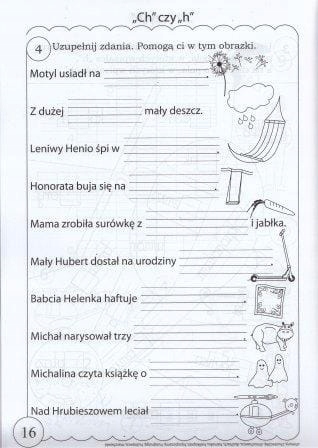 „Ch” czy „h”
4 Uzupełnij zdania. Pomogą ci w tym obrazki.
Motyl usiadł na .
Z dużej mały deszcz.
Leniwy Henio śpi w .
Honorata buja się na .
Mama zrobiła surówkę z i jabłka.
Mały Hubert dostał na urodziny .
Babcia Helenka haftuje .
Michał narysował trzy .
Michalina czyta książkę o .
Nad Hrubieszowem leciał .
16